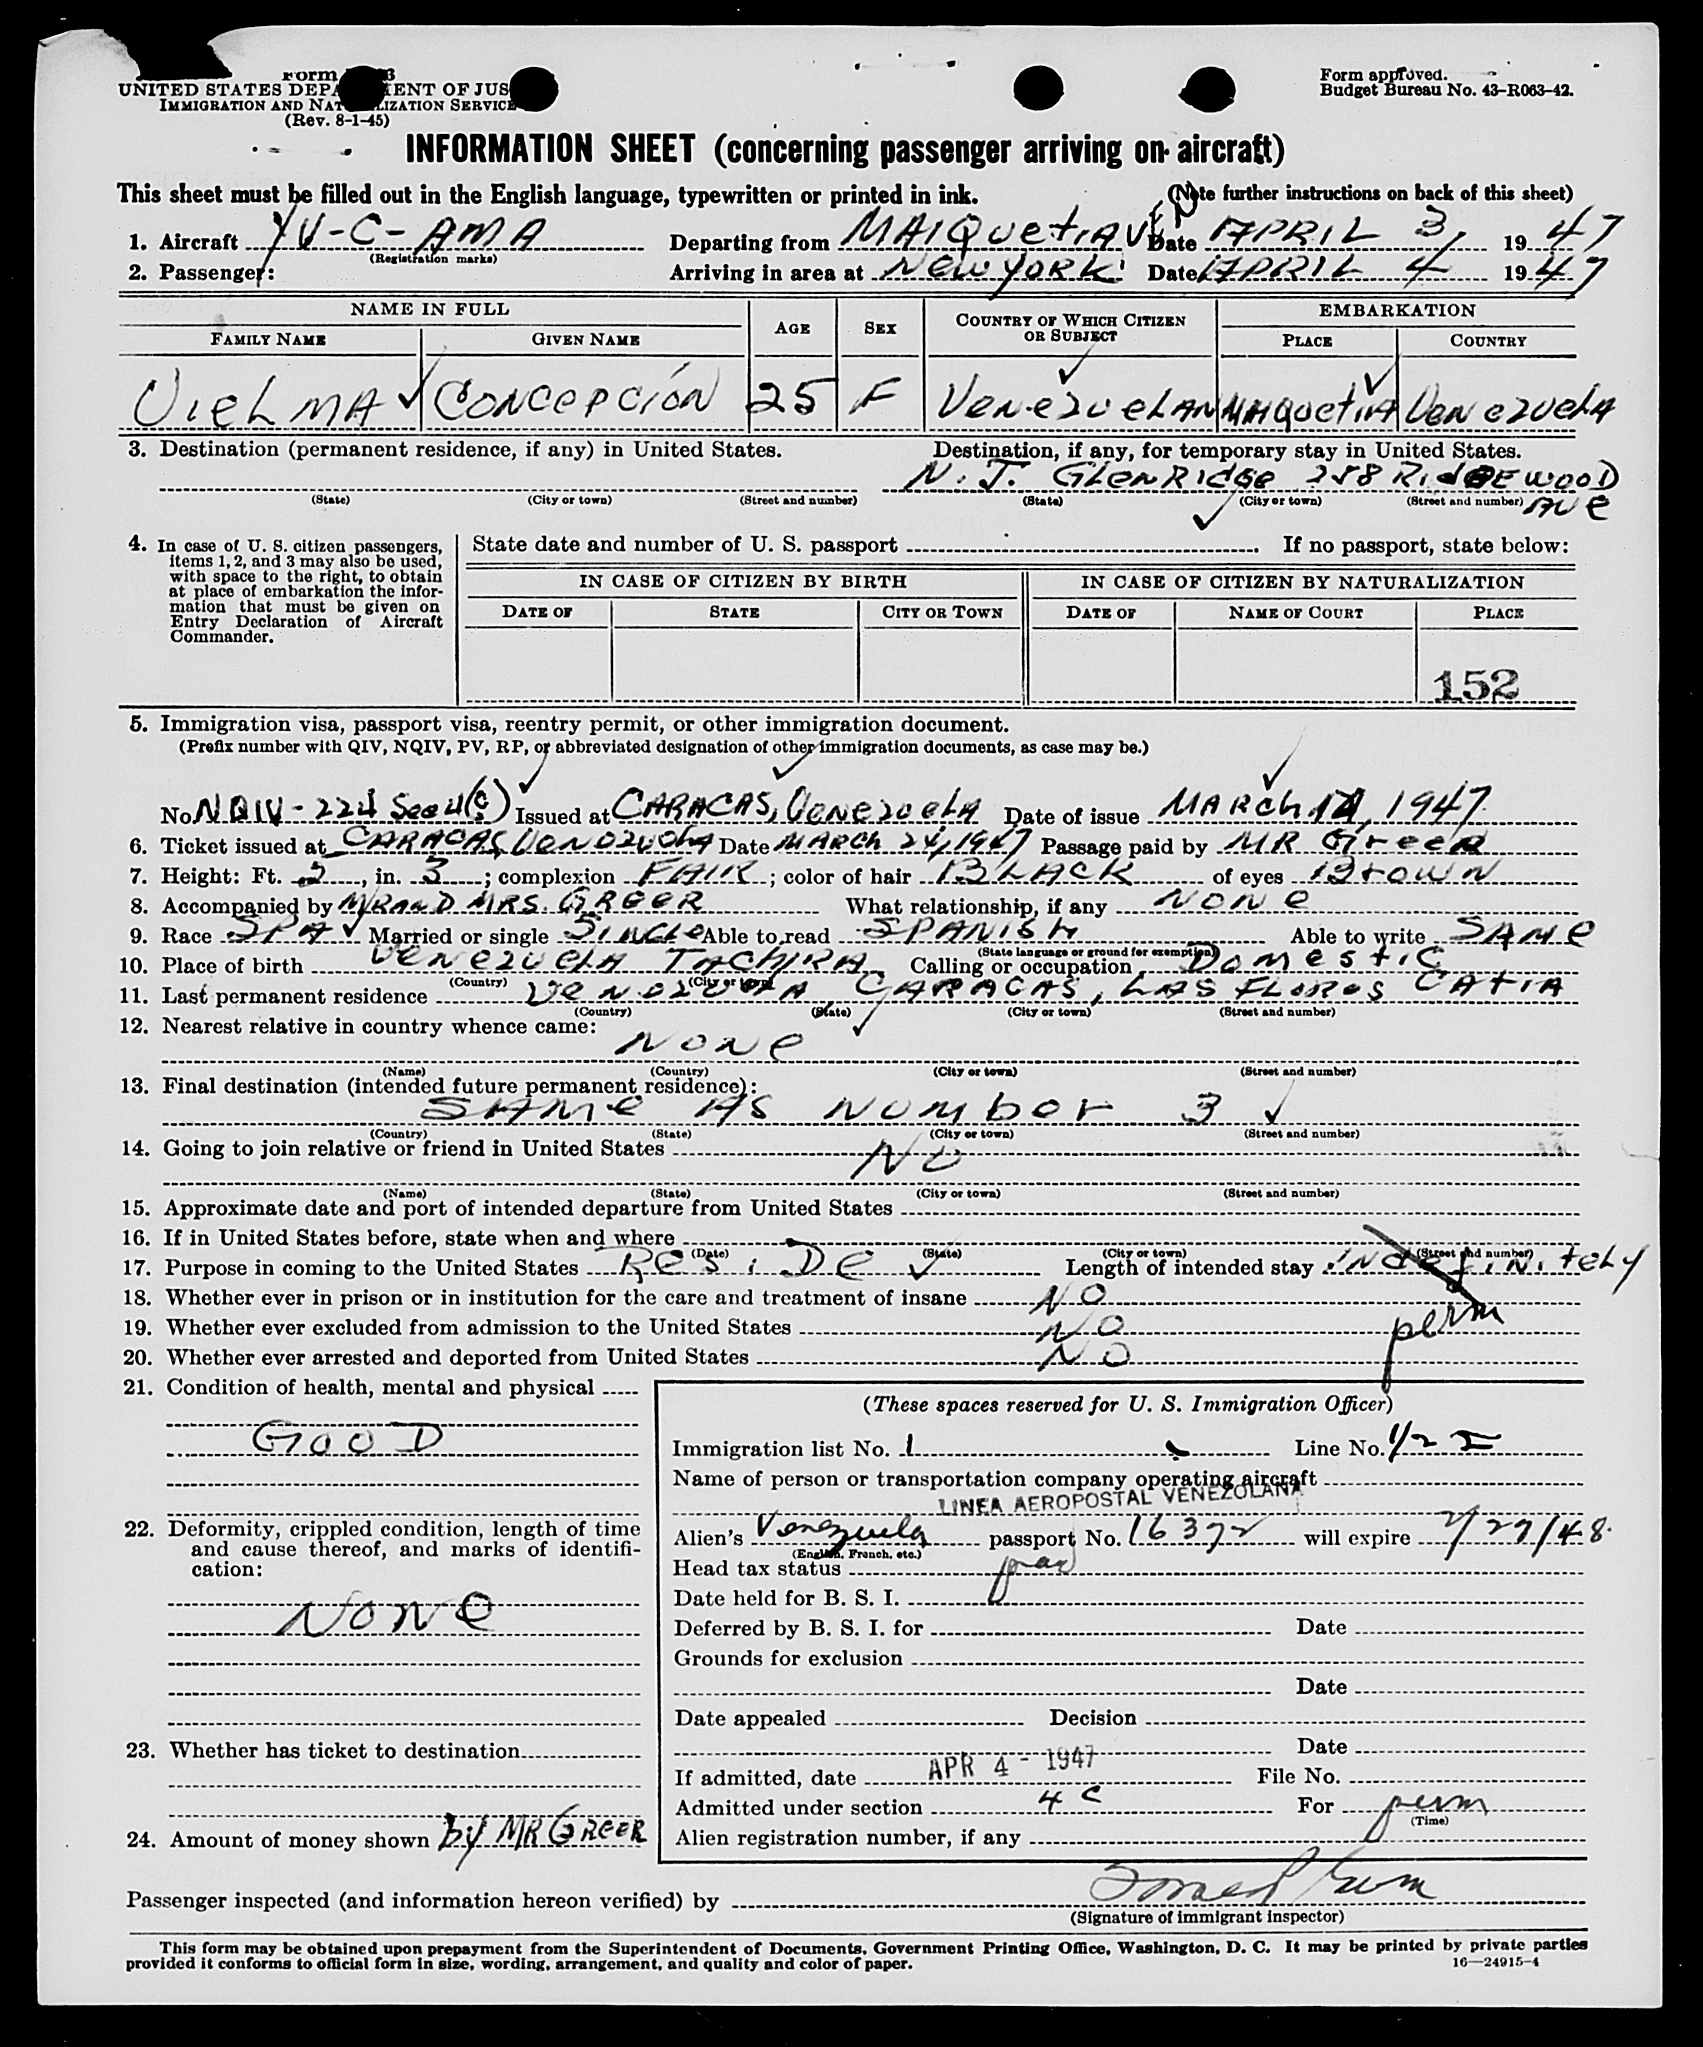 Form
UNITED STATES DEPARTMENT OF JUS
IMMIGRATION AND NATURALIZATION SERVICE
(Rev. 8-1-45)
Form approved.
Budget Bureau No. 43-R063-42.
INFORMATION SHEET (concerning passenger arriving on aircraft)
This sheet must be filled out in the English language, typewritten or printed in ink. (Note further instructions on back of this sheet)
1. Aircraft YV-C-AMA Departing from MAIQuetIA VEN Date APRIL 3, 1947
(Registration marks)
2. Passenger: Arriving in area at NEW YORK Date APRIL 4 1947
NAME IN FULL AGE SEX COUNTRY OF WHICH CITIZEN OR SUBJECT EMBARKATION
FAMILY NAME GIVEN NAME PLACE COUNTRY
VIELMA CONCEPCIÓN 25 F VENEZUELAN MAIQuetIA VENEZUELA
3. Destination (permanent residence, if any) in United States. Destination, if any, for temporary stay in United States.
N.J. GLENRIDGE 258 RIDGEWOOD
(State) (City or town) (Street and number) (State) (City or town) (Street and number) AVE
4. In case of U. S. citizen passengers, items 1, 2, and 3 may also be used, with space to the right, to obtain at place of embarkation the information that must be given on Entry Declaration of Aircraft Commander.
State date and number of U. S. passport If no passport, state below:
IN CASE OF CITIZEN BY BIRTH IN CASE OF CITIZEN BY NATURALIZATION
DATE OF STATE CITY OR TOWN DATE OF NAME OF COURT PLACE
152
5. Immigration visa, passport visa, reentry permit, or other immigration document.
(Prefix number with QIV, NQIV, PV, RP, or abbreviated designation of other immigration documents, as case may be.)
No. NQIV-224 Sec 4(c) Issued at CARACAS, VENEZUELA Date of issue MARCH 1947
6. Ticket issued at CARACAS, VENOZUOLA Date MARCH 24, 1947 Passage paid by MR GREER
7. Height: Ft. 5, in. 3; complexion FAIR; color of hair BLACK of eyes BROWN
8. Accompanied by MR AND MRS. GREER What relationship, if any NONE
9. Race SPA Married or single SINGLE Able to read SPANISH Able to write SAME
(State language or ground for exemption)
10. Place of birth VENEZUELA TACHIRA Calling or occupation DOMESTIC
(Country) (City or town)
11. Last permanent residence VENOZUOLA, CARACAS, LAS FLOROS CATIA
(Country) (State) (City or town) (Street and number)
12. Nearest relative in country whence came:
NONE
(Name) (Country) (City or town) (Street and number)
13. Final destination (intended future permanent residence):
SAME AS NUMBER 3
(Country) (State) (City or town) (Street and number)
14. Going to join relative or friend in United States NO
(Name) (State) (City or town) (Street and number)
15. Approximate date and port of intended departure from United States
16. If in United States before, state when and where
(Date) (State) (City or town) (Street and number)
17. Purpose in coming to the United States RESIDE Length of intended stay INDEFINITELY
18. Whether ever in prison or in institution for the care and treatment of insane NO
19. Whether ever excluded from admission to the United States NO perm
20. Whether ever arrested and deported from United States NO
21. Condition of health, mental and physical
GOOD
22. Deformity, crippled condition, length of time and cause thereof, and marks of identification:
NONE
23. Whether has ticket to destination
24. Amount of money shown by MR GREER
(These spaces reserved for U. S. Immigration Officer)
Immigration list No. 1 Line No.
Name of person or transportation company operating aircraft
LINEA AEROPOSTAL VENEZOLANA
Alien's Venezuela passport No. 16372 will expire 2/27/48
(English, French, etc.)
Head tax status
Date held for B. S. I.
Deferred by B. S. I. for Date
Grounds for exclusion
Date
Date appealed Decision
Date
If admitted, date APR 4 - 1947 File No.
Admitted under section 4 C For perm
(Time)
Alien registration number, if any
Passenger inspected (and information hereon verified) by
(Signature of immigrant inspector)
This form may be obtained upon prepayment from the Superintendent of Documents, Government Printing Office, Washington, D. C. It may be printed by private parties
provided it conforms to official form in size, wording, arrangement, and quality and color of paper. 16—24915-4